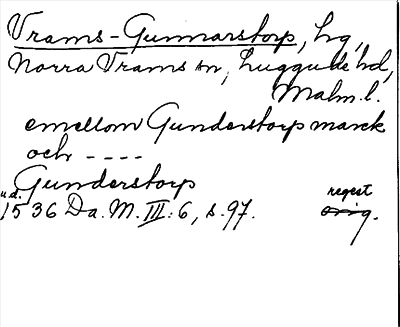 Vrams-Gunnarstorp, hg,
Norra Vrams sn, Luggude hd,
Malm. l.
emellom Gunderstorp marck
och ----
Gunderstorp
u.d. regest
1536 Da. M. III: 6, s. 97. orig.